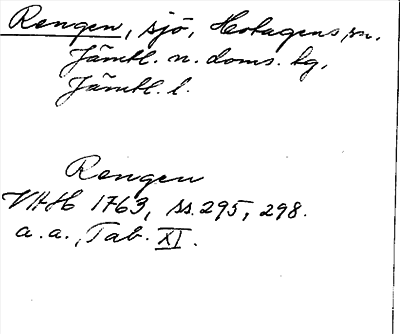 Rengen, sjö, Hotagens sn.
Jämtl. n. doms. tg,
Jämtl. l.
Rengen
VAH 1763, ss. 295, 298.
a. a., Tab. XI.